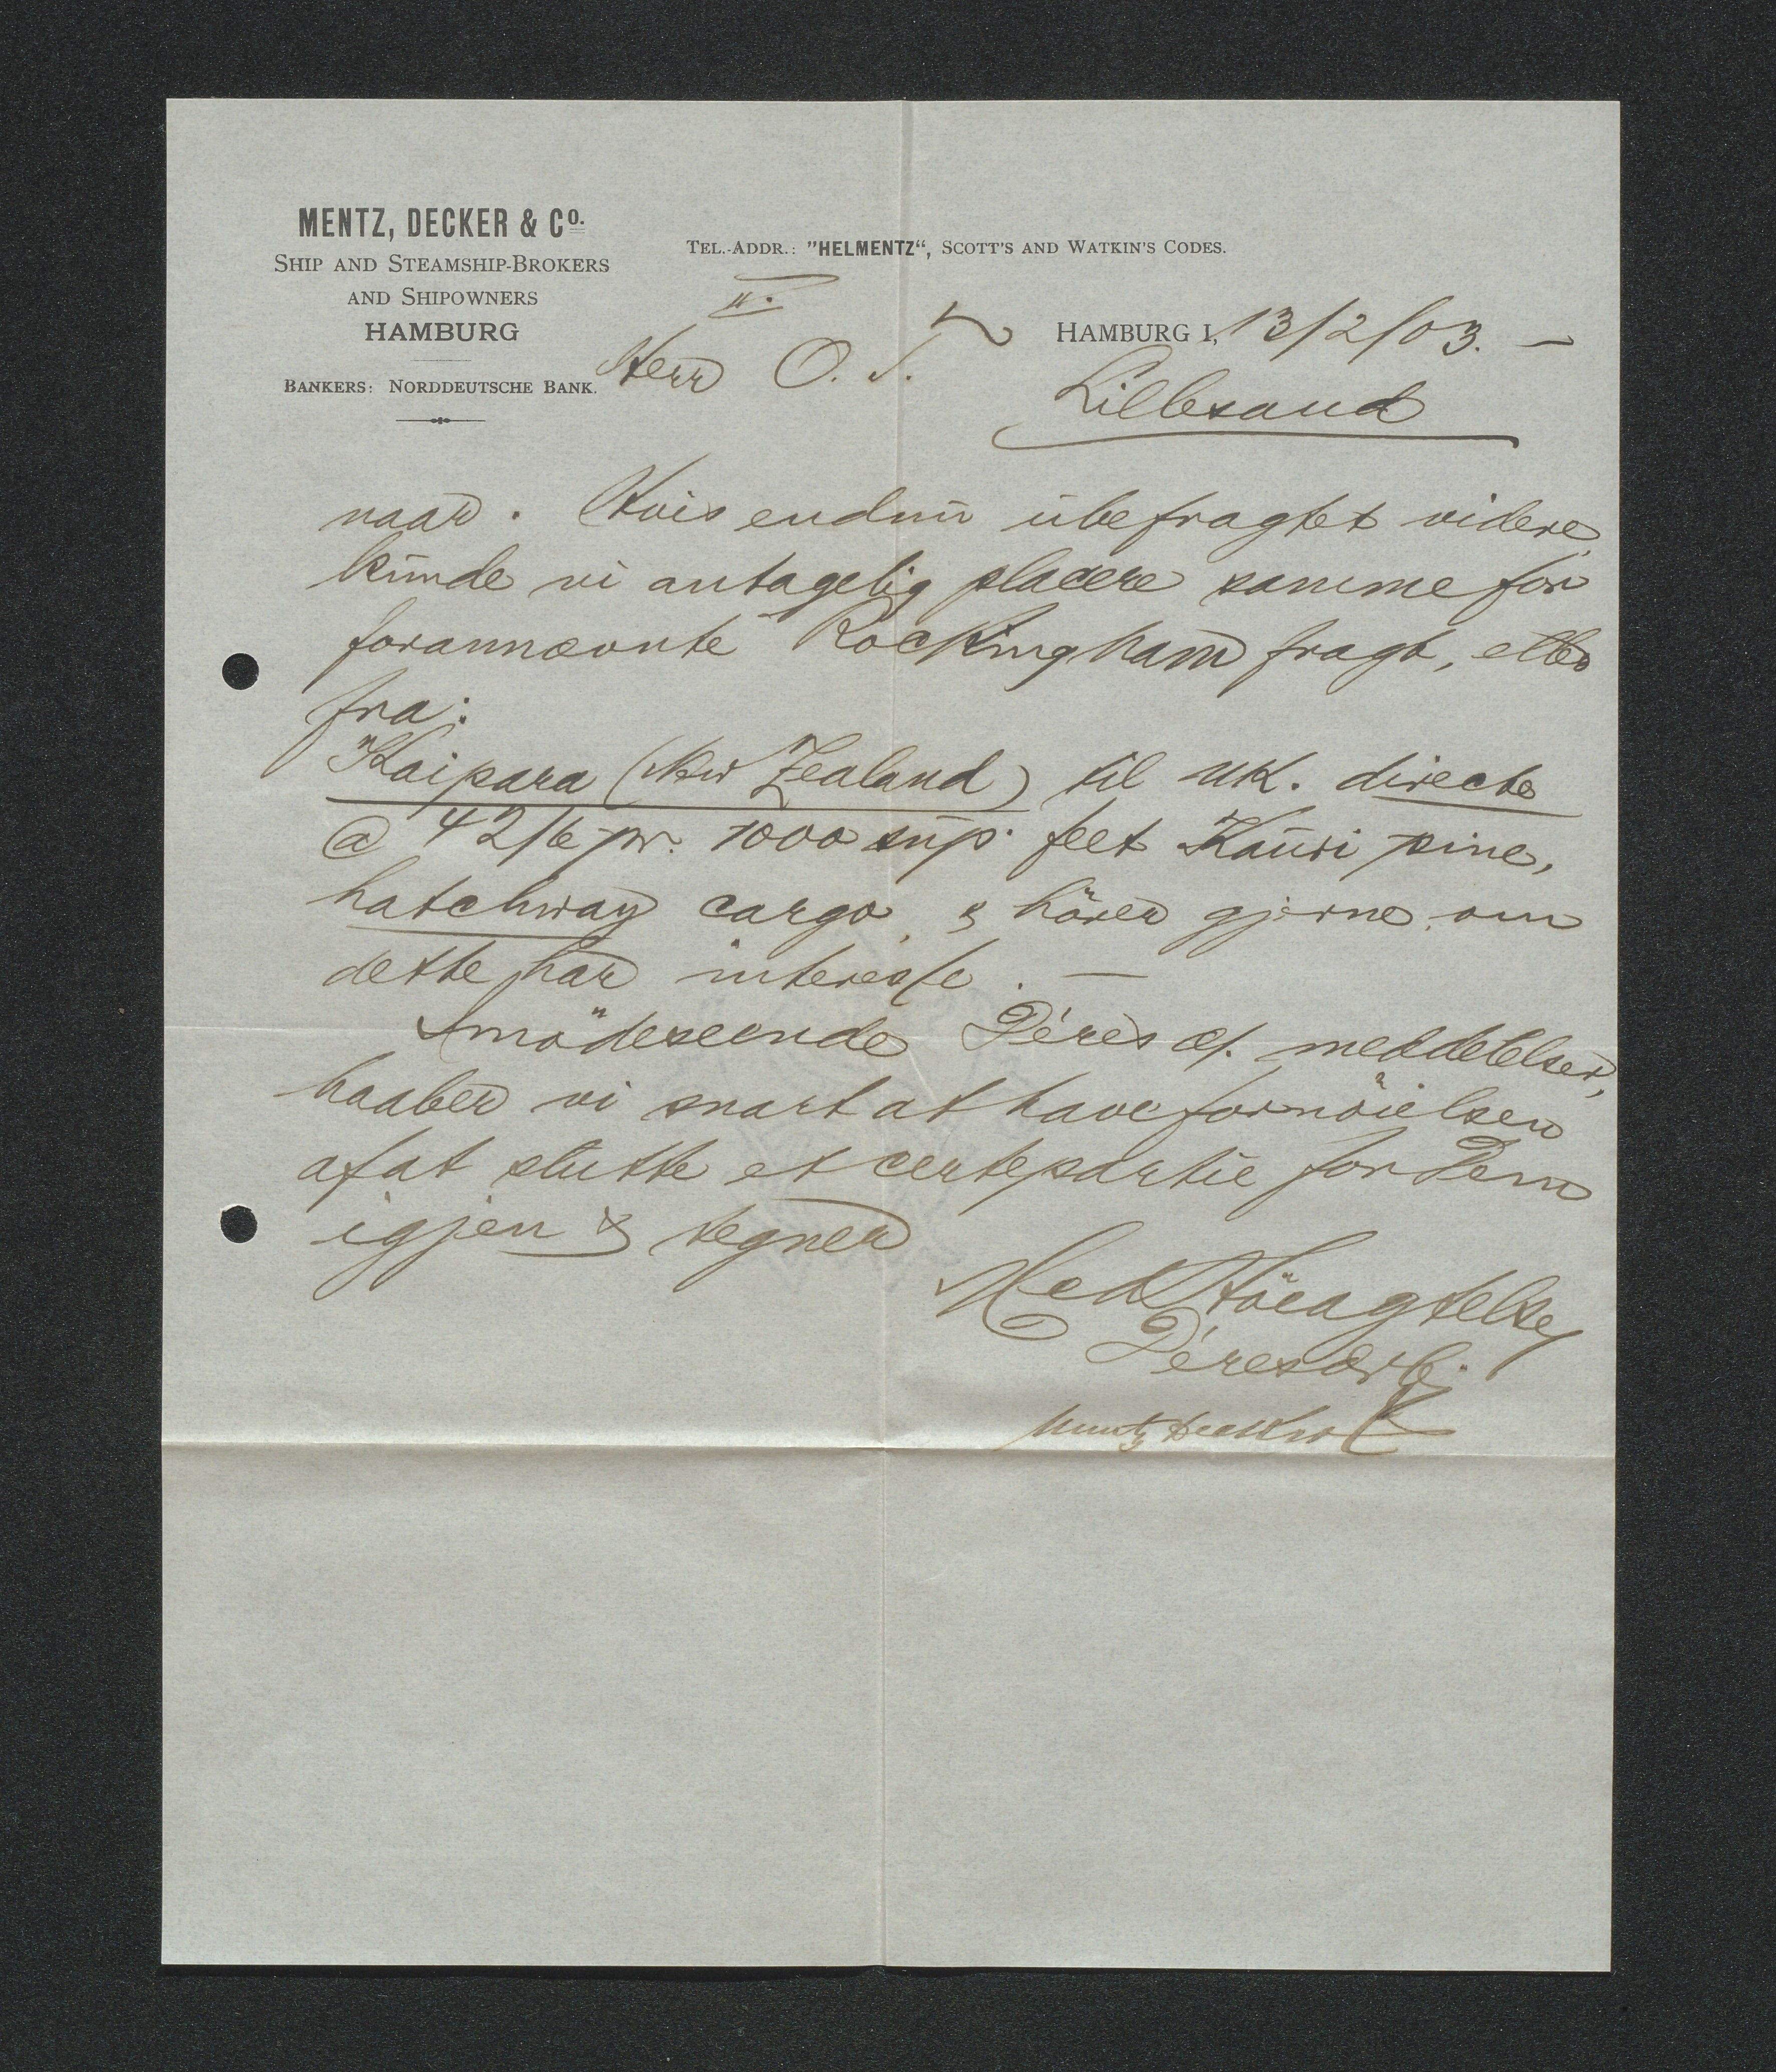 MENTZ, DECKER & Co.
SHIP AND STEAMSHIP-BROKERS
AND SHIPOWNERS
HAMBURG
BANKERS: NORDDEUTSCHE BANK.
TEL.-ADDR.: "HELMENTZ“, SCOTT'S AND WATKIN'S CODES.
II.
HAMBURG 1, 13/2/03. —
Herr O. T.
Lillesand
naar. Hvis endnu übefragtet videre
künde vi antagelig placere samme for
forannævnte Rockingham fragt, eller
fra:
Kaipara (New Zealand) til UK. directe
@ 42/6 pr. 1000 süp. feet Kaüri pine,
hatchway cargo, & hörer gjerne om
dette har interesse. —
Imödeseende Déres æ. meddelelser,
haaber vi snart at have fornöielsen
af at slutte et certepartie for Dem
igjen & tegner
Med Höiagtelse
Déres ærb.
Mentz Decker &